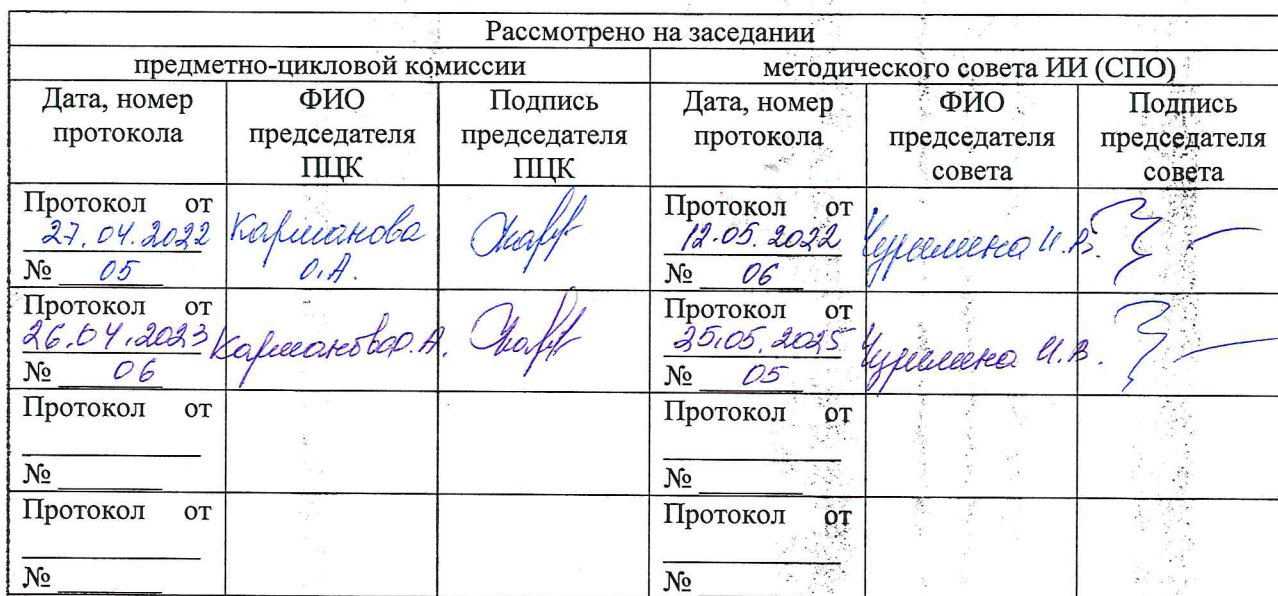 Рассмотрено на заседании
предметно-цикловой комиссии
методического совета ИИ (СПО)
Дата, номер протокола
ФИО председателя ПЦК
Подпись председателя ПЦК
Дата, номер протокола
ФИО председателя совета
Подпись председателя совета
Протокол от
27.04.2022
№ 05
Карманова
О.А.
Протокол от
12.05.2022
№ 06
И.В.
Протокол от
26.04.2023
№ 06
Карманова О.А.
Протокол от
25.05.2025
№ 05
И.В.
Протокол от
№
Протокол от
№
Протокол от
№
Протокол от
№